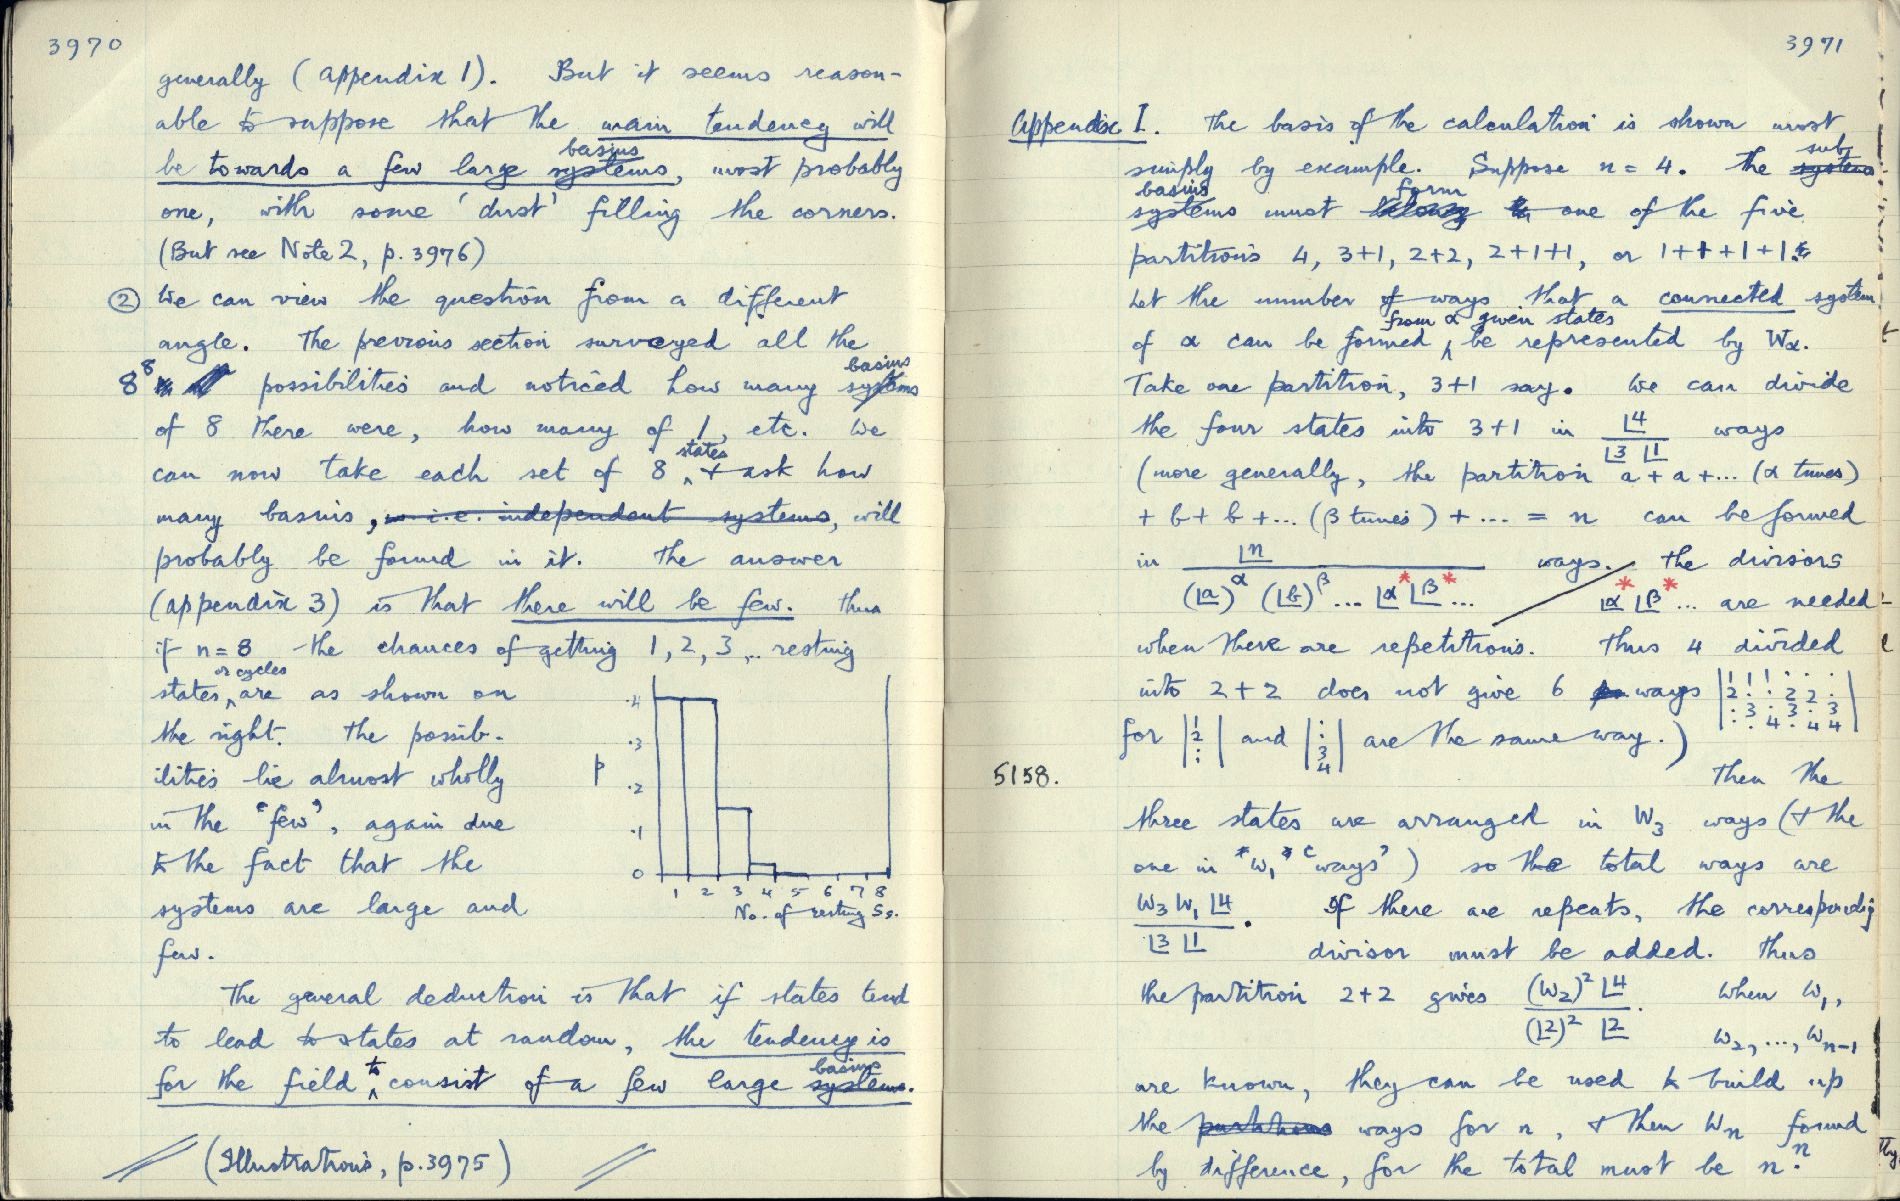 3970
generally (Appendix 1). But it seems reason-
able to suppose that the main tendency will
basins
be towards a few large systems, most probably
one, with some 'dust' filling the corners.
(But see Note 2, p. 3976)
② We can view the question from a different
angle. The previous section surveyed all the
basins
8⁸ possibilities and noticed how many systems
of 8 there were, how many of 1, etc. We
states
can now take each set of 8 ^, + ask how
many basins, i.e. independent systems, will
probably be found in it. The answer
(appendix 3) is that there will be few. Thus
if n = 8 the chances of getting 1, 2, 3 ... resting
or cycles
states ^, are as shown on
the right. The possib-
ilities lie almost wholly
in the "few", again due
to the fact that the
systems are large and
few.
.4
.3
p
.2
.1
0
1 2 3 4 5 6 7 8
No. of resting Ss.
The general deduction is that if states tend
to lead to states at random, the tendency is
to basins
for the field ^ consist of a few large systems.
(Illustrations, p. 3975)
3971
Appendix I. The basis of the calculation is shown most
sub
simply by example. Suppose n = 4. The systems
basins form
systems must belong to one of the five
partitions 4, 3+1, 2+2, 2+1+1, or 1+1+1+1.
Let the number of ways that a connected system
from α given states
of α can be formed ^, be represented by Wα.
Take one partition, 3+1 say. We can divide
the four states into 3+1 in |4 / |3 |1 ways
(more generally, the partition a + a + ... (α times)
+ b + b + ... (β times) + ... = n can be formed
in |n / (|a)^α (|b)^β ... |α* |β* ... ways. The divisors
|α* |β* ... are needed
when there are repetitions. Thus 4 divided
into 2+2 does not give 6 ways | 1 1 1 . . . |
| 2 . . 2 2 . |
| . 3 . 3 . 3 |
| . . 4 . 4 4 |
for | 1 2 : | and | : 3 4 | are the same way.)
5158.
Then the
three states are arranged in W₃ ways (+ the
one in "W₁" 'ways') so the total ways are
W₃ W₁ |4 / |3 |1 . If there are repeats, the corresponding
divisor must be added. Thus
the partition 2+2 gives (W₂)² |4 / (|2)² |2 . When W₁,
W₂, ..., Wn-1
are known, they can be used to build up
the partitions ways for n, + then Wn found
by difference, for the total must be nⁿ.